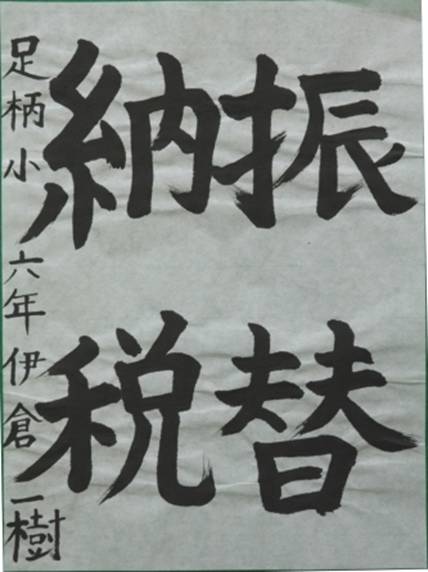 振替
納税
足柄小 六年 伊倉一樹